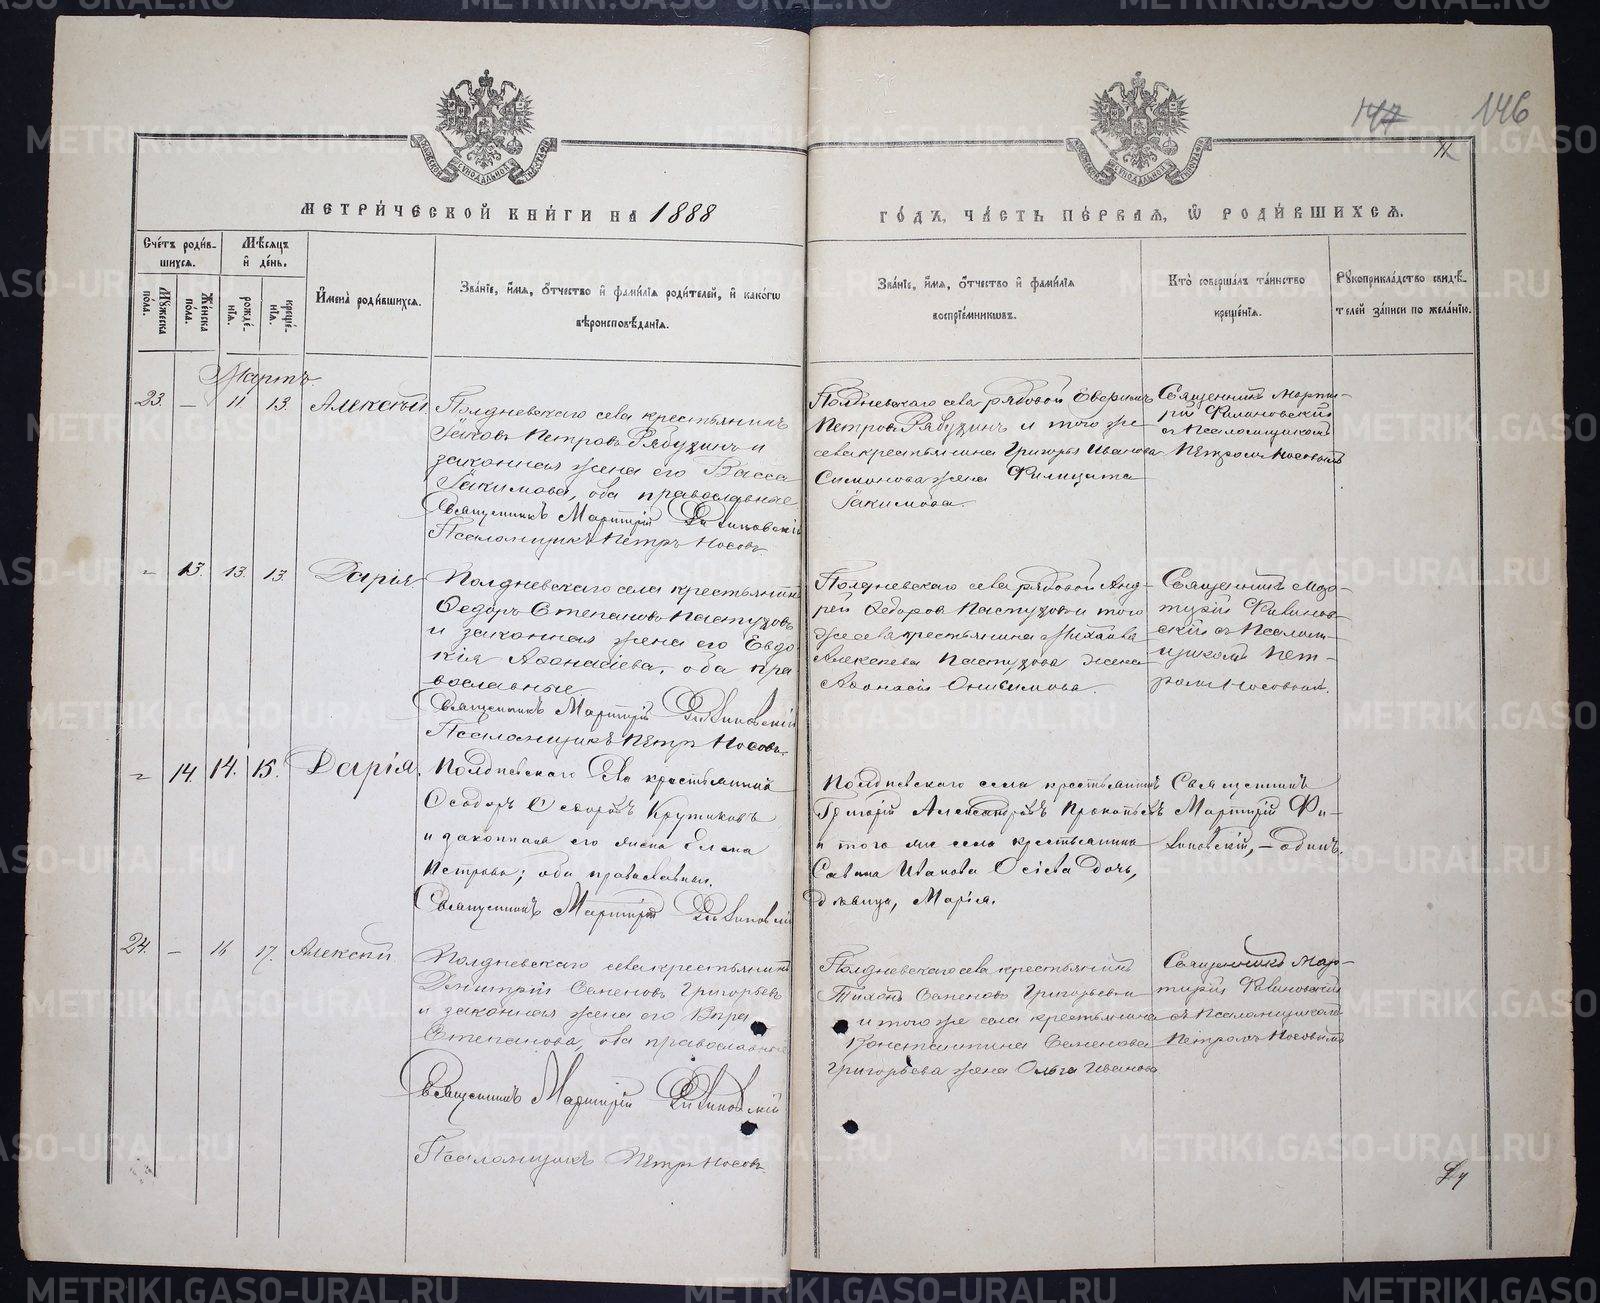 147 146
11
МЕТРИ́ЧЕСКОЙ КНИ́ГИ НА 1888
ГО́ДЪ, ЧА́СТЬ ПЕ́РВАЯ, Ѡ РОДИ́ВШИХСЯ.
Счётъ роди́в-
шихся.
Му́жеска
пола.
Же́нска
по́ла.
Мѣ́сяцъ
и́ де́нь.
рожде́-
нія.
креще́-
нія.
И́мена̀ роди́вшихся.
Зва́ніе, и́мя, ѻ́тчество и́ фами́лія роди́телей, и́ како́гѡ
вѣроисповѣ́данія.
Зва́ніе, и́мя, ѻ́тчество и́ фами́лія
воспріе́мникѡвъ.
Кто̀ соверша́лъ та́инство
креще́нія.
Рукоприкла́дство свидѣ́-
телей за́писи по жела́нію.
Мартъ.
23. – 11 13. Алексѣй
Полдневскаго села крестьянинъ
Іаковъ Петровъ Рябухинъ и
законная жена его Васса
Іакимова, оба православные
Священникъ Мартирій Филиновскій
Псаломщикъ Петръ Носовъ
Полдневскаго села рядовой
Петровъ Рябухинъ и того же
села крестьянина Григорья Иванова
Симонова жена Филицата
Іакимова.
Священникъ Марти-
рій Филиновскій
съ Псаломщикомъ
Петромъ Носовымъ
" 13. 13. 13. Дарія.
Полдневскаго села крестьянинъ
Ѳедоръ Степановъ Пастуховъ
и законная жена его Евдо
кія Аѳонасіева, оба пра
вославные
Священникъ Мартирій Филиновскій
Псаломщикъ Петръ Носовъ.
Полдневскаго села рядовой Анд-
рей Ѳедоровъ Пастуховъ и того
же села крестьянина Михаила
Алексѣева Пастухова жена
Аѳонасія Онисимова.
Священникъ Мар-
тирій Филинов-
скій съ Псалом-
щикомъ Пет-
ромъ Носовымъ.
" 14. 14. 15. Дарія.
Полдневскаго села крестьянинъ
Ѳеодоръ Ѳедоровъ Крутиковъ
и законная его жена Елена
Петрова; оба православныя.
Священникъ Мартирій Филиновскій
Полдневскаго села крестьянинъ
Григорій Александровъ Прокопьевъ
и того же села крестьянина
Савина Иванова Осіева дочь,
дѣвица, Марія.
Священникъ
Мартирій Фи-
линовскій, – одинъ.
24. – 16 17. Алексѣй
Полдневскаго села крестьянинъ
Димитрій Семеновъ Григорьевъ
и законная жена его Вѣра
Степанова, оба православные
Священникъ Мартирій Филиновскій
Псаломщикъ Петръ Носовъ
Полдневскаго села крестьянинъ
Тихонъ Семеновъ Григорьевъ
и того же села крестьянина
Константина Семенова
Григорьева жена Ольга Иванова
Священникъ Мар-
тирій Филиновскій
съ Псаломщикомъ
Петромъ Носовымъ